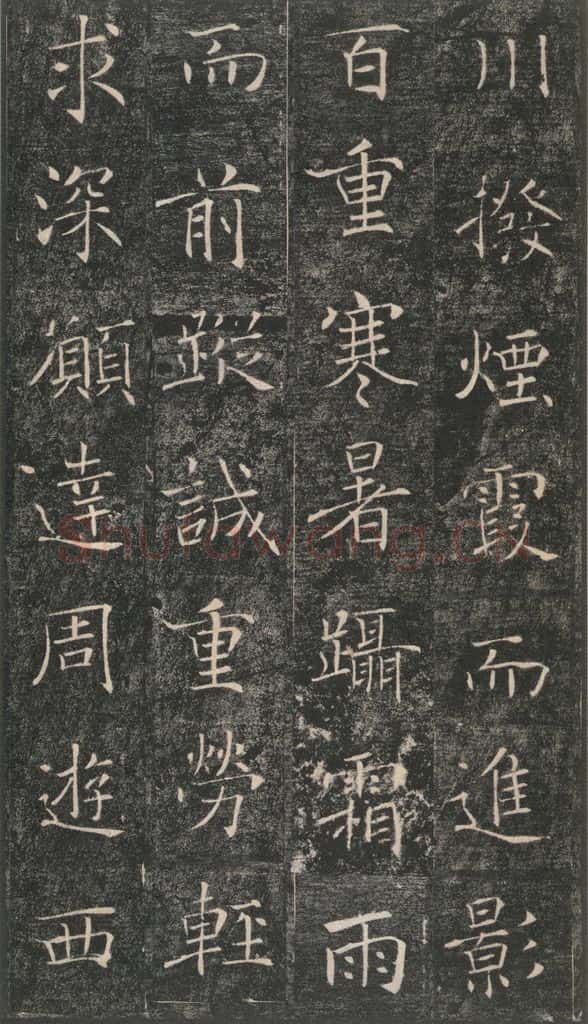 川撥煙霞而進影
百重寒暑躡霜雨
而前蹤誠重勞輕
求深願達周遊西
shufawang.cn